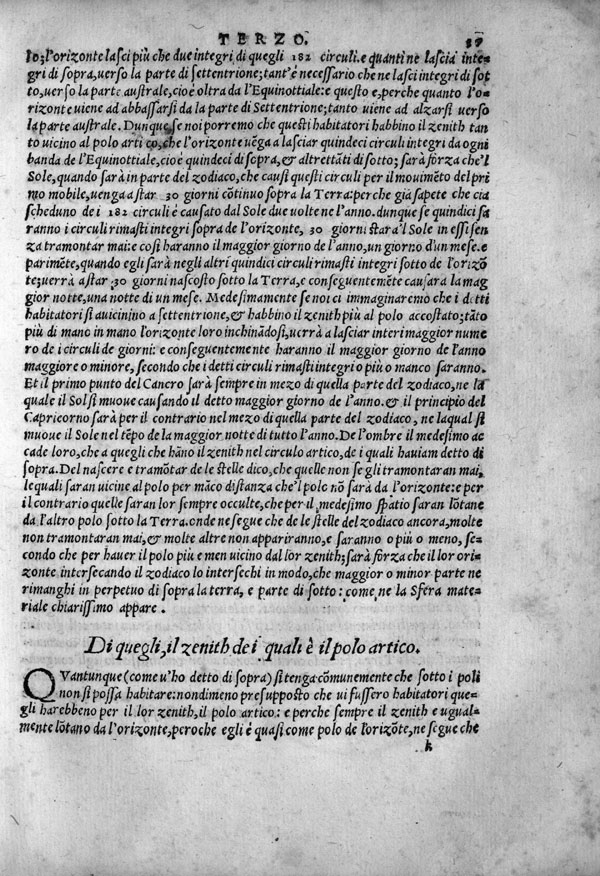 TERZO. 37
lo; l'orizonte lasci più che due integri di quegli 182 circuli. e quanti ne lascia inte-
gri di sopra, verso la parte di settentrione; tant'è necessario che ne lasci integri di sot
to, verso la parte australe, cioè oltra da l'Equinottiale: e questo e, perche quanto l'o-
rizonte uiene ad abbassarsi da la parte di Settentrione; tanto uiene ad alzarsi uerso
la parte australe. Dunque, se noi porremo che questi habitatori habbino il zenith tan
to uicino al polo artico, che l'orizonte uẽga a lasciar quindeci circuli integri da ogni
banda de l'Equinottiale, cioè quindeci di sopra, & altrettãti di sotto; sarà forza che'l
Sole, quando sarà in parte del zodiaco, che causi questi circuli per il mouimẽto del pri
mo mobile, uenga a star 30 giorni cõtinuo sopra la Terra: perche già sapete che cia
scheduno de i 182 circuli è causato dal Sole due uolte ne l'anno. dunque se quindici sa
ranno i circuli rimasti integri sopra de l'orizonte, 30 giorni stara'l Sole in essi sen
za tramontar mai: e così haranno il maggior giorno de l'anno, un giorno d'un mese. e
parimẽte, quando egli sarà negli altri quindici circuli rimasti integri sotto de l'orizõ
te; uerrà a star 30 giorni nascosto sotto la Terra, e conseguentemẽte causara la mag
gior notte, una notte di un mese. Medesimamente se noi ci immaginaremo che i detti
habitatori si auicinino a settentrione, & habbino il zenith più al polo accostato; tãto
più di mano in mano l'orizonte loro inchinãdosi, uerrà a lasciar interi maggior nume
ro de i circuli de giorni: e conseguentemente haranno il maggior giorno de l'anno
maggiore o minore, secondo che i detti circuli rimasti integri o più o manco saranno.
Et il primo punto del Cancro sarà sempre in mezo di quella parte del zodiaco, ne la
quale il Sol si muoue causando il detto maggior giorno de l'anno. & il principio del
Capricorno sarà per il contrario nel mezo di quella parte del zodiaco, ne laqual si
muoue il Sole nel tẽpo de la maggior notte di tutto l'anno. De l'ombre il medesimo ac
cade loro, che a quegli che hãno il zenith nel circulo artico, de i quali hauiam detto di
sopra. Del nascere e tramõtar de le stelle dico, che quelle non se gli tramontaran mai,
le quali saran uicine al polo per mãco distanza che'l polo nõ sarà da l'orizonte: e per
il contrario quelle saran lor sempre occulte, che per il medesimo spatio saran lõtane
da l'altro polo sotto la Terra. onde ne segue che de le stelle del zodiaco ancora, molte
non tramontaran mai, & molte altre non appariranno, e saranno o più o meno, se-
condo che per hauer il polo più e men uicino dal lor zenith; sarà forza che il lor ori-
zonte intersecando il zodiaco lo intersechi in modo, che maggior o minor parte ne
rimanghi in perpetuo di sopra la terra, e parte di sotto: come ne la Sfera mate-
riale chiarissimo appare.
Di quegli, il zenith de i quali è il polo artico.
QVantunque (come u'ho detto di sopra) si tenga cõmunemente che sotto i poli
non si possa habitare: nondimeno presupposto che ui fussero habitatori que-
gli harebbeno per il lor zenith, il polo artico: e perche sempre il zenith e ugual-
mente lõtano da l'orizonte, peroche egli è quasi come polo de l'orizõte, ne segue che
k